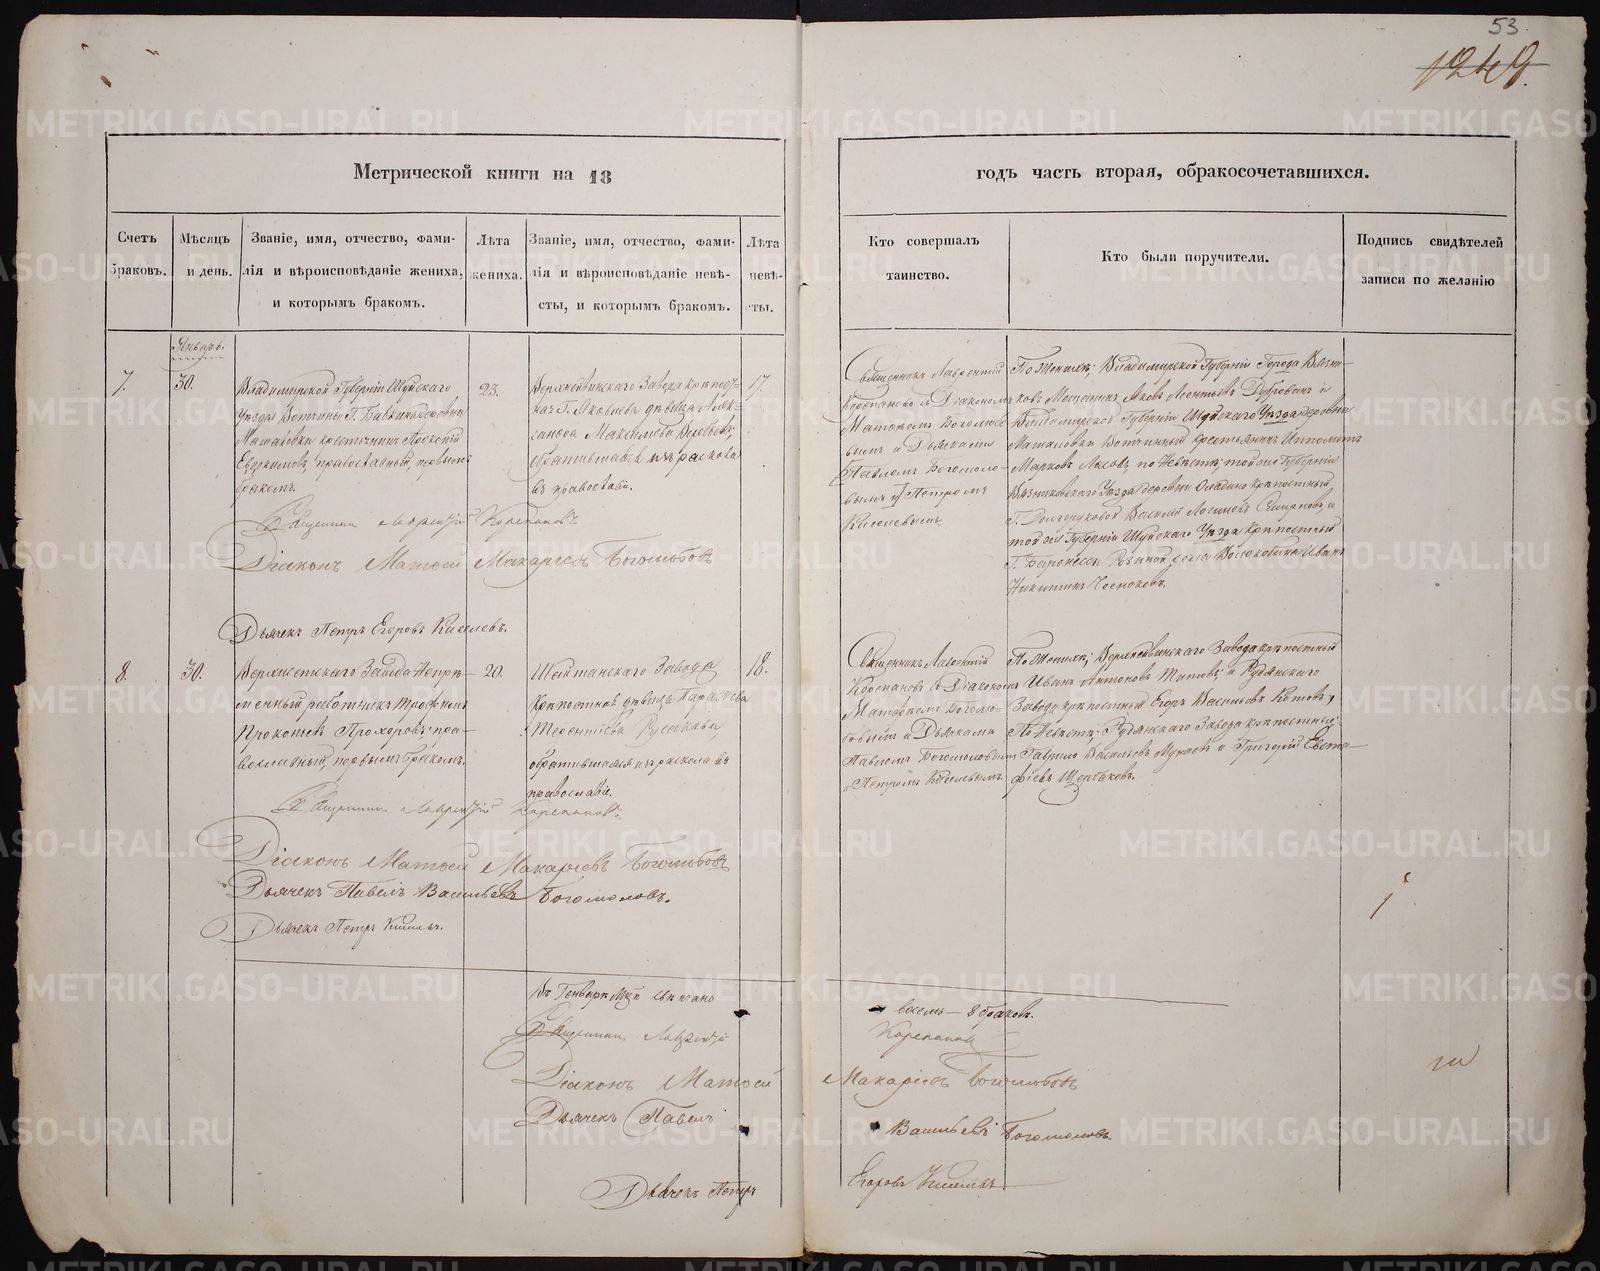 53.
1249.
Метрической книги на 18
годъ часть вторая, обракосочетавшихся.
Счетъ браковъ.
Мѣсяцъ и день.
Званіе, имя, отчество, фами-
лія и вѣроисповѣданіе жениха,
и которымъ бракомъ.
Лѣта жениха.
Званіе, имя, отчество, фами-
лія и вѣроисповѣданіе невѣ-
сты, и которымъ бракомъ.
Лѣта невѣ-
сты.
Кто совершалъ
таинство.
Кто были поручители.
Подпись свидѣтелей
записи по желанію
Январь
7.
30.
Владимирской Губерніи Шуйскаго
Уѣзда Вотчины Г.
крестьянинъ
Евдокимовъ, православный, первымъ
бракомъ.
23.
Верхнейвинскаго Завода
Г. Яковлева дѣвица Алек-
сандра Максимова
обратившаяся изъ раскола
въ православіе.
17.
Священникъ Лаврентій
Корепановъ съ Діакономъ
Матѳеемъ Боголюбо-
вымъ и Дьячками
Павломъ Богомоло-
вымъ и Петромъ
Киселевымъ.
По Женихѣ; Владимирской Губерніи Города Вязни-
ковъ Мещанинъ Яковъ Леонтьевъ Дубровинъ и
Владимирской Губерніи Шуйскаго Уѣзда деревни
Вотчинный крестьянинъ Ипполитъ
Марковъ по Невѣстѣ; той же Губерніи
Вязниковскаго Уѣзда деревни Оладино крѣпостный
Г. Долгоруковой Василій Логиновъ Смирновъ, и
той же Губерніи Шуйскаго Уѣзда крѣпостный
Г. Баронессы села Иванъ
Никитинъ Чесноковъ.
Священникъ Лаврентій Корепановъ.
Діаконъ Матѳей Макаріевъ Боголюбовъ
Дьячекъ Петръ Егоровъ Киселевъ.
8.
30.
Верхнетскаго Завода Непре-
менный работникъ Трофимъ
Прокопьевъ Прохоровъ, пра-
вославный, первымъ бракомъ.
20.
Шайтанскаго Завода
крѣпостная дѣвица Параскева
Терентіева Русакова
обратившаяся изъ раскола въ
православіе.
18.
Священникъ Лаврентій
Корепановъ съ Діакономъ
Матѳеемъ Боголю-
бовымъ и Дьячками
Павломъ Богомоловымъ
и Петромъ Киселевымъ.
По Женихѣ; Верхнейвинскаго Завода крѣпостный
Иванъ Антоновъ Титовъ, и Рудянскаго
Завода крѣпостный Егоръ Васильевъ Котовъ;
По Невѣстѣ; Рудянскаго Завода крѣпостные:
Гаврило Васильевъ и Григорій Евста-
фіевъ Щербаковъ.
Священникъ Лаврентій Корепановъ.
Діаконъ Матѳей Макаріевъ Боголюбовъ
Дьячекъ Павелъ Васильевъ Богомоловъ.
Дьячекъ Петръ Киселевъ.
Въ Генварѣ М-цѣ свѣнчано восемь — 8 браковъ.
Священникъ Лаврентій Корепановъ
Діаконъ Матѳей Макаріевъ Боголюбовъ
Дьячекъ Павелъ Васильевъ Богомоловъ.
Дьячекъ Петръ Егоровъ Киселевъ
METRIKI.GASO-URAL.RU